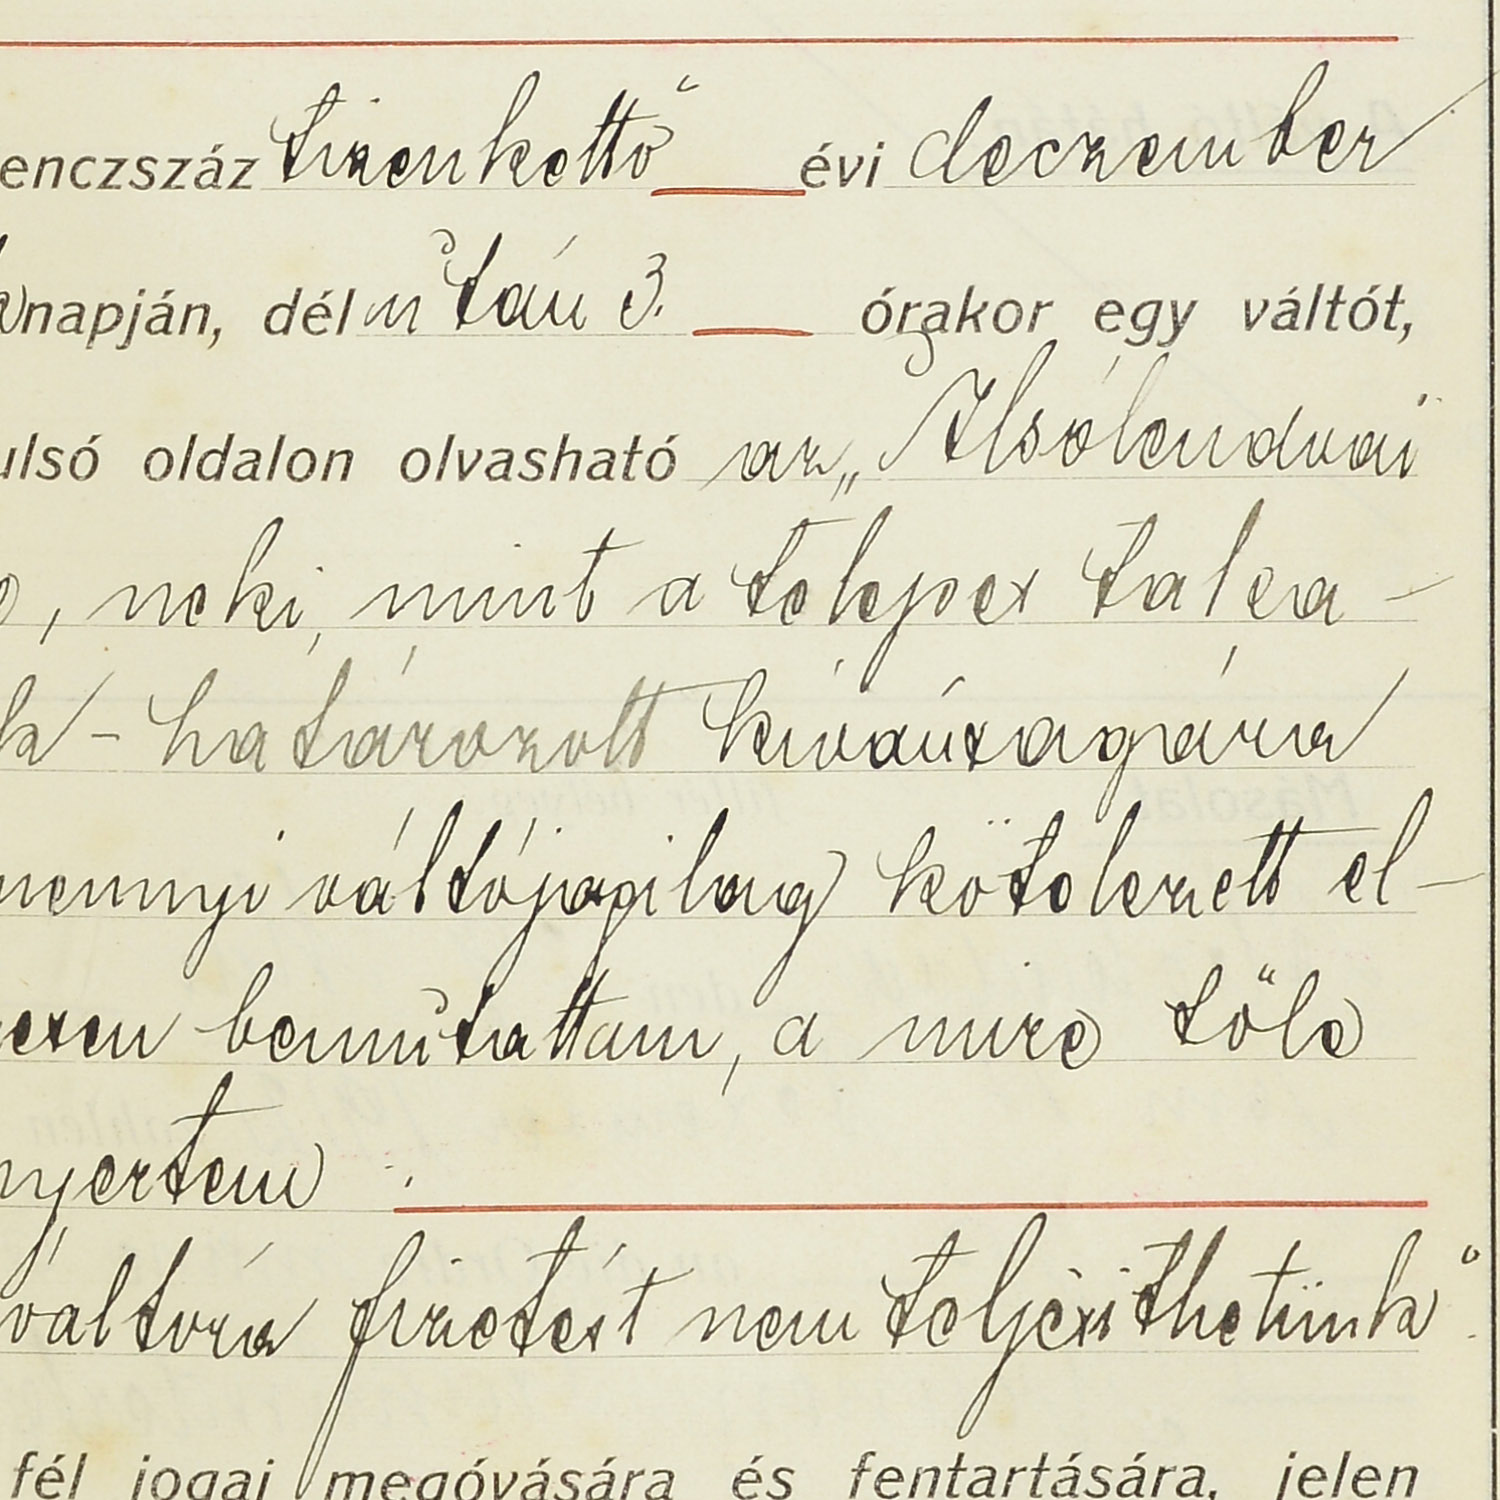 enczszáz tizenkettő évi deczember
napján, dél után 3. órakor egy váltót,
ulsó oldalon olvasható az „Alsólendvai
, neki, mint a telepes talea-
k - határozott kívánságára
mennyi váltójogilag kötelezett el-
esen bemutattam, a mire tőle
nyertem :
váltóra fizetést nem teljesíthetünk"
fél jogai megóvására és fentartására, jelen